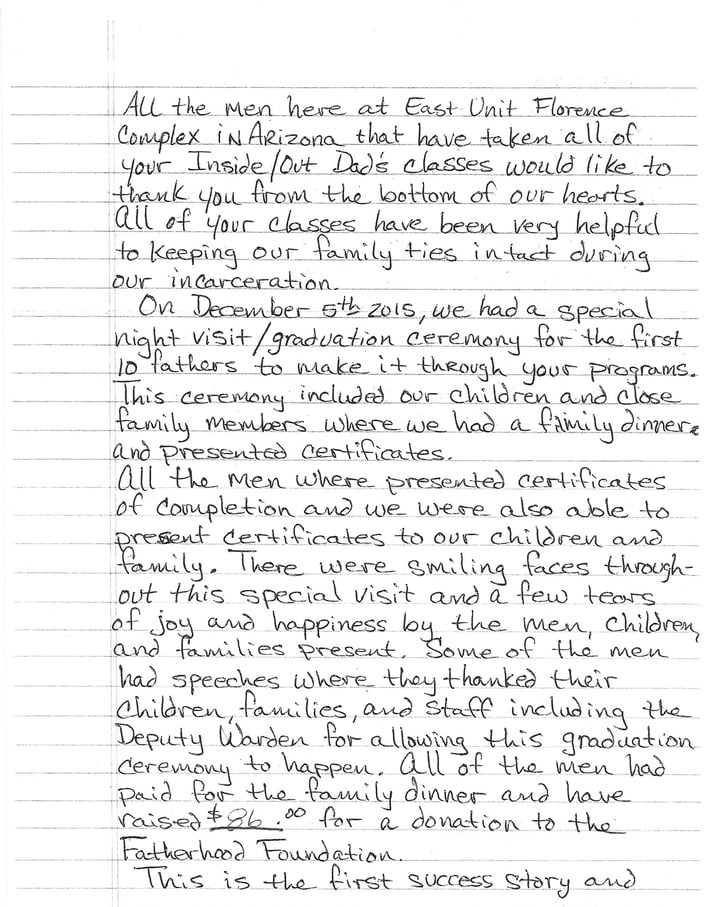 All the men here at East Unit Florence
Complex in Arizona that have taken all of
your Inside/Out Dad's classes would like to
thank you from the bottom of our hearts.
All of your classes have been very helpful
to keeping our family ties intact during
our incarceration.
On December 5th 2015, we had a special
night visit/graduation ceremony for the first
10 fathers to make it through your programs.
This ceremony included our children and close
family members where we had a family dinner
and presented certificates.
All the men where presented certificates
of completion and we were also able to
present certificates to our children and
family. There were smiling faces through-
out this special visit and a few tears
of joy and happiness by the men, children,
and families present. Some of the men
had speeches where they thanked their
children, families, and staff including the
Deputy Warden for allowing this graduation
ceremony to happen. All of the men had
paid for the family dinner and have
raised $86.00 for a donation to the
Fatherhood Foundation.
This is the first success story and